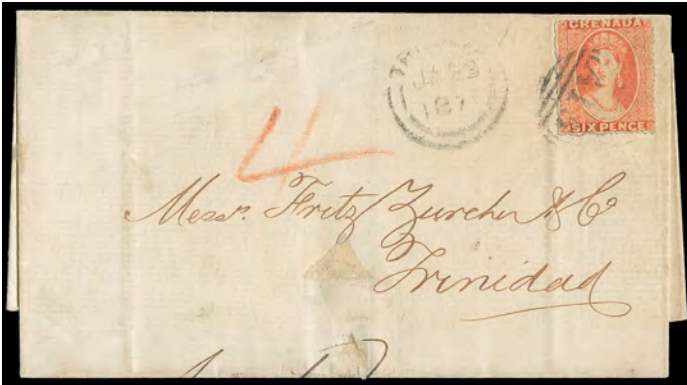 GRENADA
SIX PENCE
JA 23
187
4
Messrs. Fritz Zurcher & Co
Trinidad